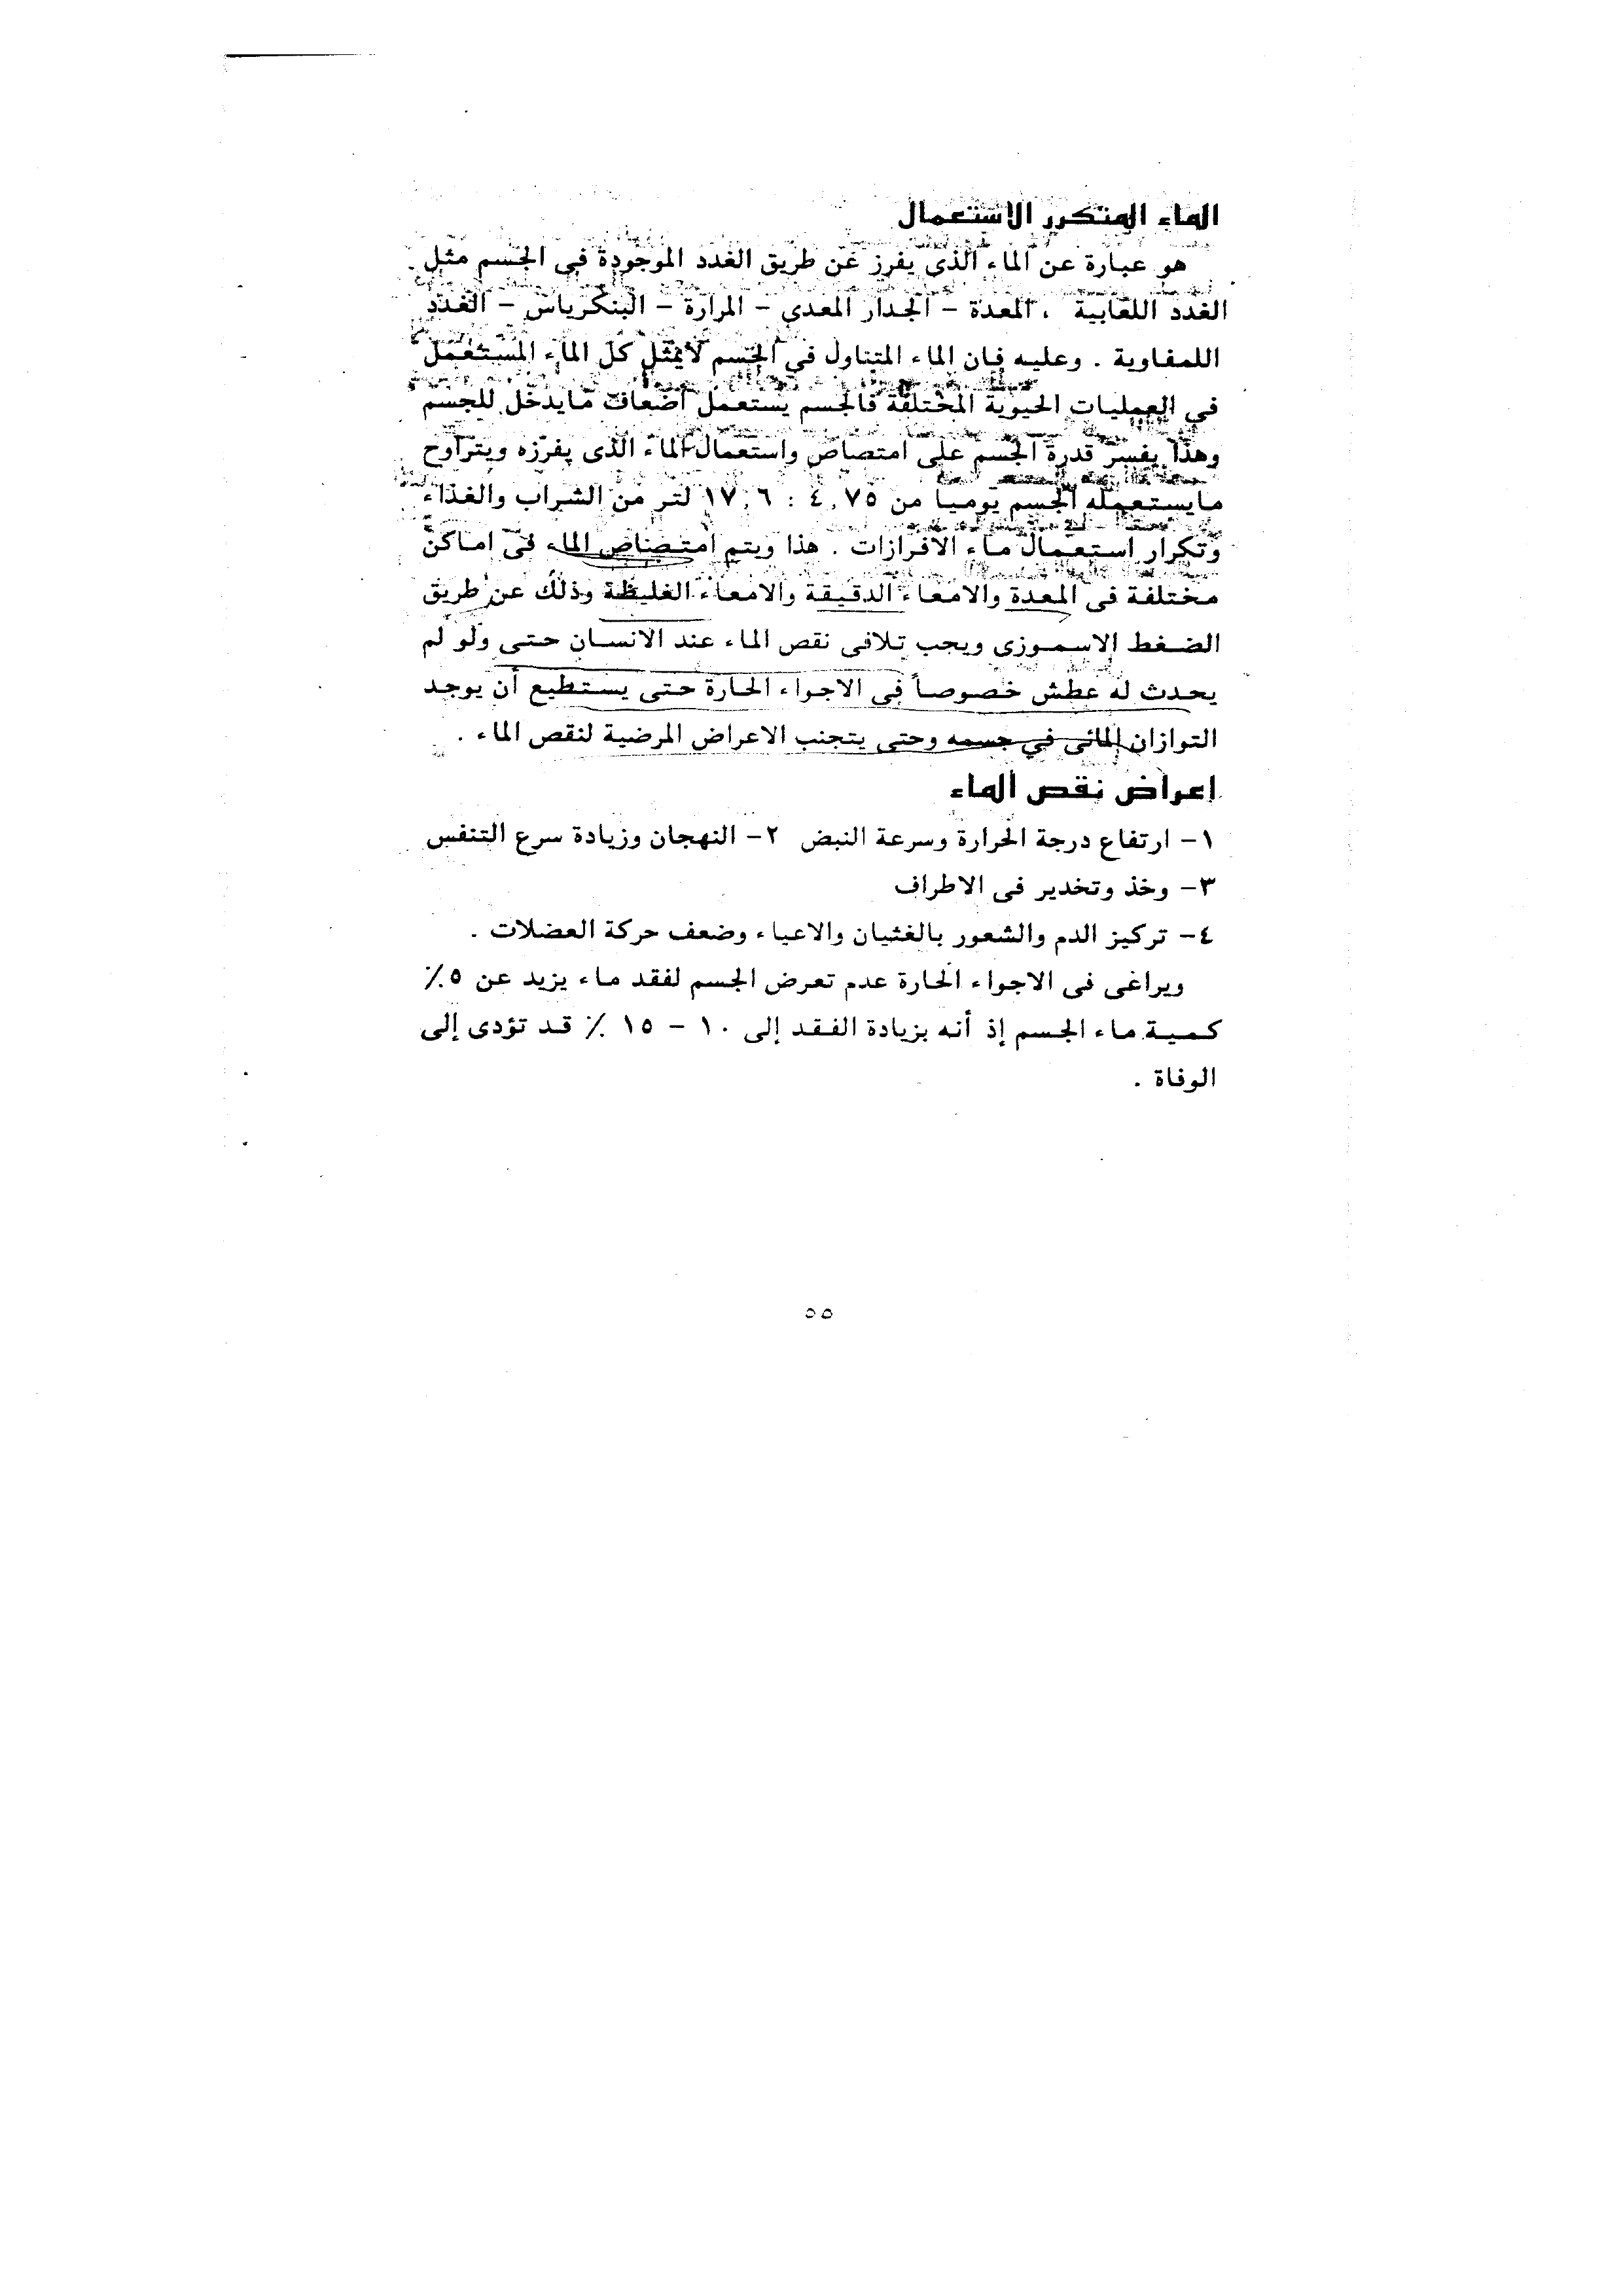 الماء المتكرر الاستعمال
هو عبارة عن الماء الذى يفرز عن طريق الغدد الموجودة فى الجسم مثل
الغدد اللعابية ، المعدة – الجدار المعدى – المرارة – البنكرياس – الغدد
اللمفاوية . وعليه فإن الماء المتناول فى الجسم لايمثل كل الماء المستعمل
فى العمليات الحيوية المختلفة فالجسم يستعمل أضعاف مايدخل للجسم
وهذا يفسر قدرة الجسم على امتصاص واستعمال الماء الذى يفرزه ويتراوح
مايستعمله الجسم يوميا من ٤,٧٥ : ١٧,٦ لتر من الشراب والغذاء
وتكرار استعمال ماء الافرازات . هذا ويتم امتصاص الماء فى اماكن
مختلفة فى المعدة والامعاء الدقيقة والامعاء الغليظة وذلك عن طريق
الضغط الاسموزى ويجب تلافى نقص الماء عند الانسان حتى ولو لم
يحدث له عطش خصوصاً فى الاجواء الحارة حتى يستطيع أن يوجد
التوازان المائى فى جسمه وحتى يتجنب الاعراض المرضية لنقص الماء .
اعراض نقص الماء
١– ارتفاع درجة الحرارة وسرعة النبض ٢– النهجان وزيادة سرع التنفس
٣– وخذ وتخدير فى الاطراف
٤– تركيز الدم والشعور بالغثيان والاعياء وضعف حركة العضلات .
ويراغى فى الاجواء الحارة عدم تعرض الجسم لفقد ماء يزيد عن ٥٪
كمية ماء الجسم إذ أنه بزيادة الفقد إلى ١٠ – ١٥ ٪ قد تؤدى إلى
الوفاة .
٥٥